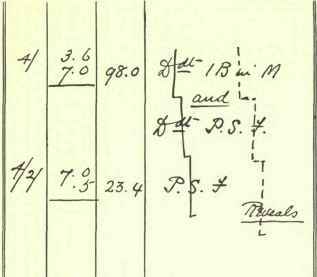 4/ 3.6
7.0 98.0 Ddt 1 B in M
and
Ddt P. S. F.
4/2/ 7.0
.5 23.4 P. S. F
Reveals